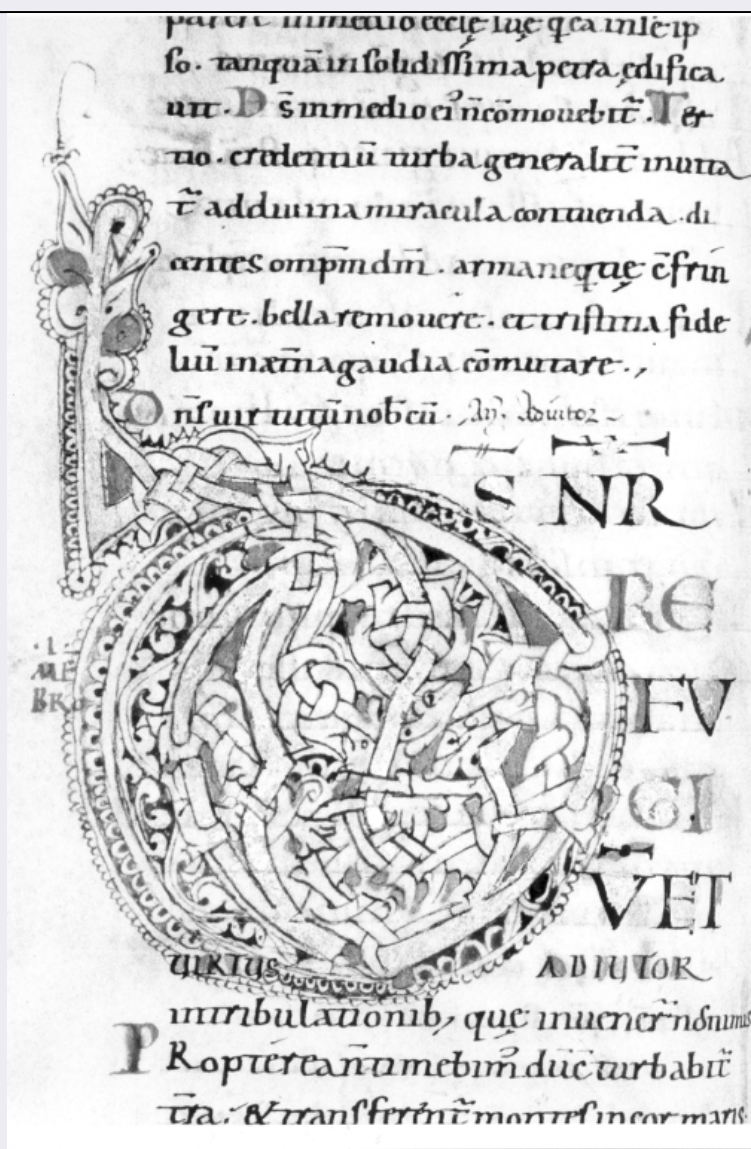 so. tanquā in solidissima petra ędifica
uit. D̄s in medio ei᾽ n̄ cōmovebit̃. Ter
tio. credentiū turba generalit̃ inuita
t̃ ad diuina miracula contuenda. di
centes om̄p̄m dm̄. arma nequitię c̄frin
gere. bella remouere. et tristitia fide
liū in æt̃na gaudia cōmutare.,
Dn̄s uirtutū nob̄cū. Adiutor
S̄ N̄R
RE
FU
GI
·I·
ME
BRO
V̄ ET
UIRTUS ADIUTOR
in tribulationib; quę inuener̃ nos nimis
PRopterea n̄ timebim᾽ dū c̄turbabit̃
t̃ra. & transferent̃ montes in cor maris.